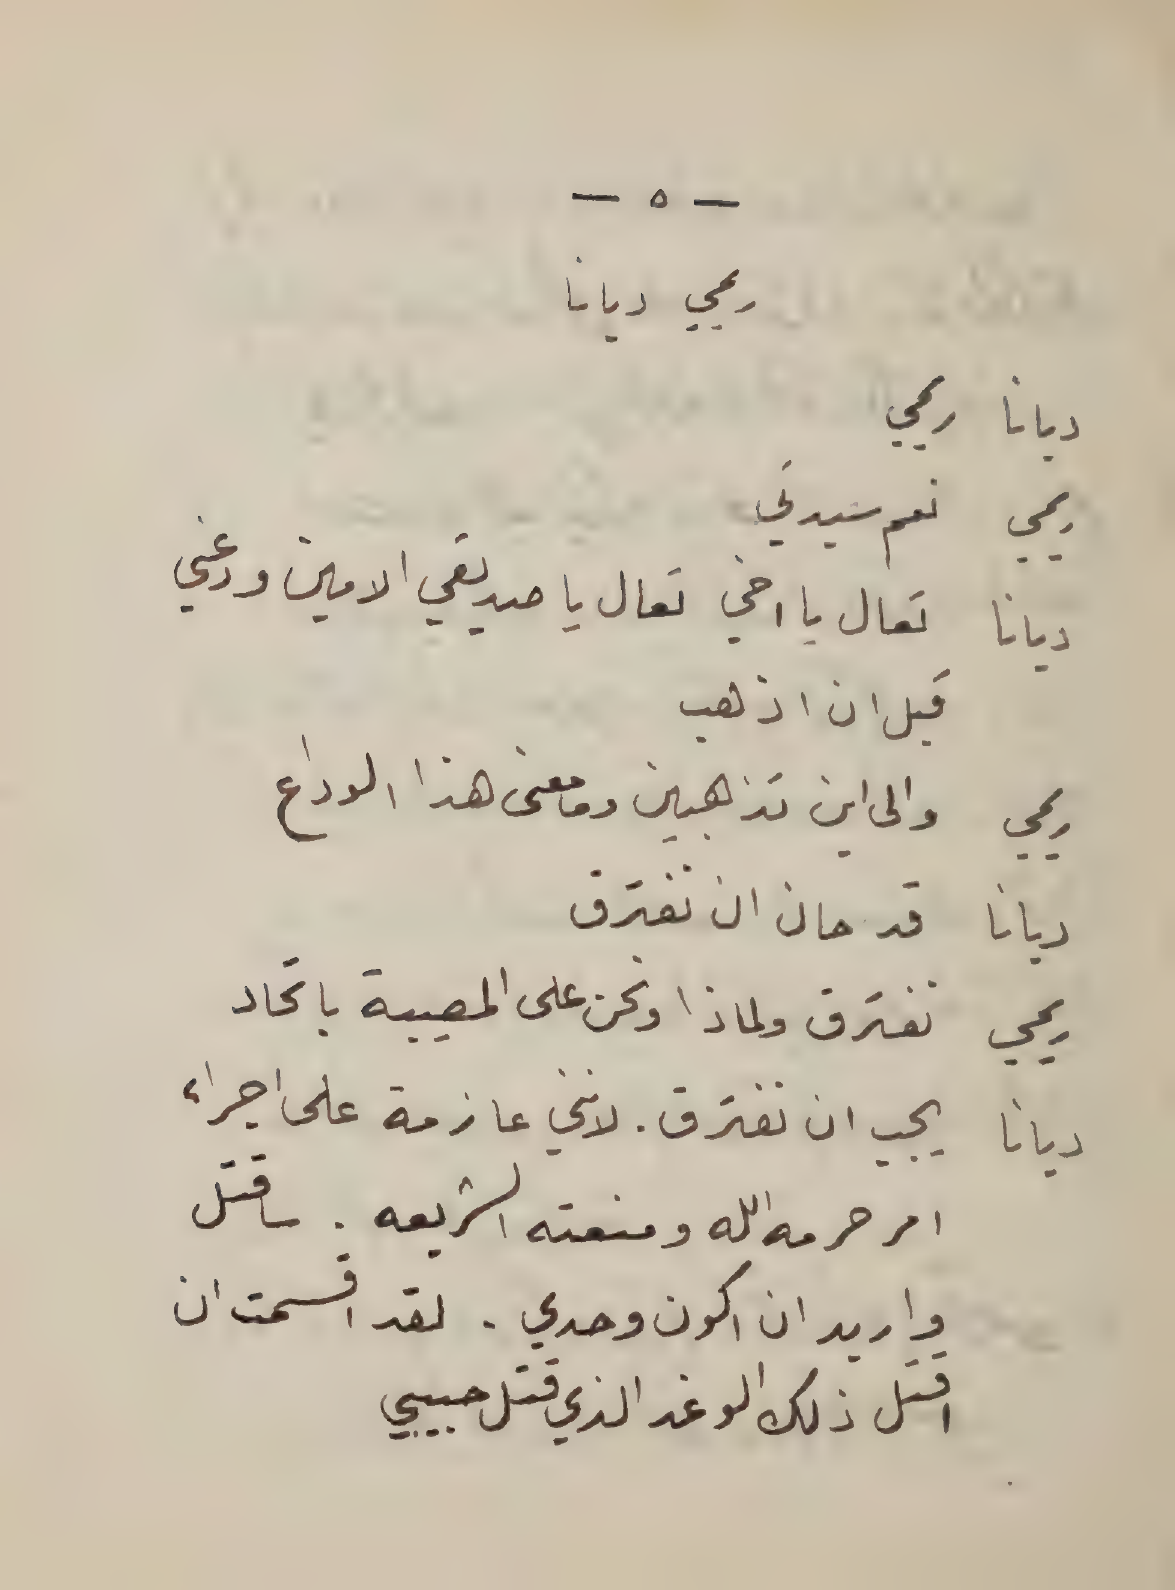 — ٥ —
ريمي ديانا
ديانا ريمي
ريمي نعم سيدتي
ديانا تعال يا اخي تعال يا صديقي الامين ودعني
قبل ان اذهب
ريمي والى اين تذهبين وما معنى هذا الوداع
ديانا قد حان ان نفترق
ريمي نفترق ولماذا ونحن على المصيبة باتحاد
ديانا يجب ان نفترق. لانني عازمة على اجراء
امر حرمه الله ومنعته الشريعه. ساقتل
واريد ان اكون وحدي. لقد اقسمت ان
اقتل ذلك الوغد الذي قتل حبيبي